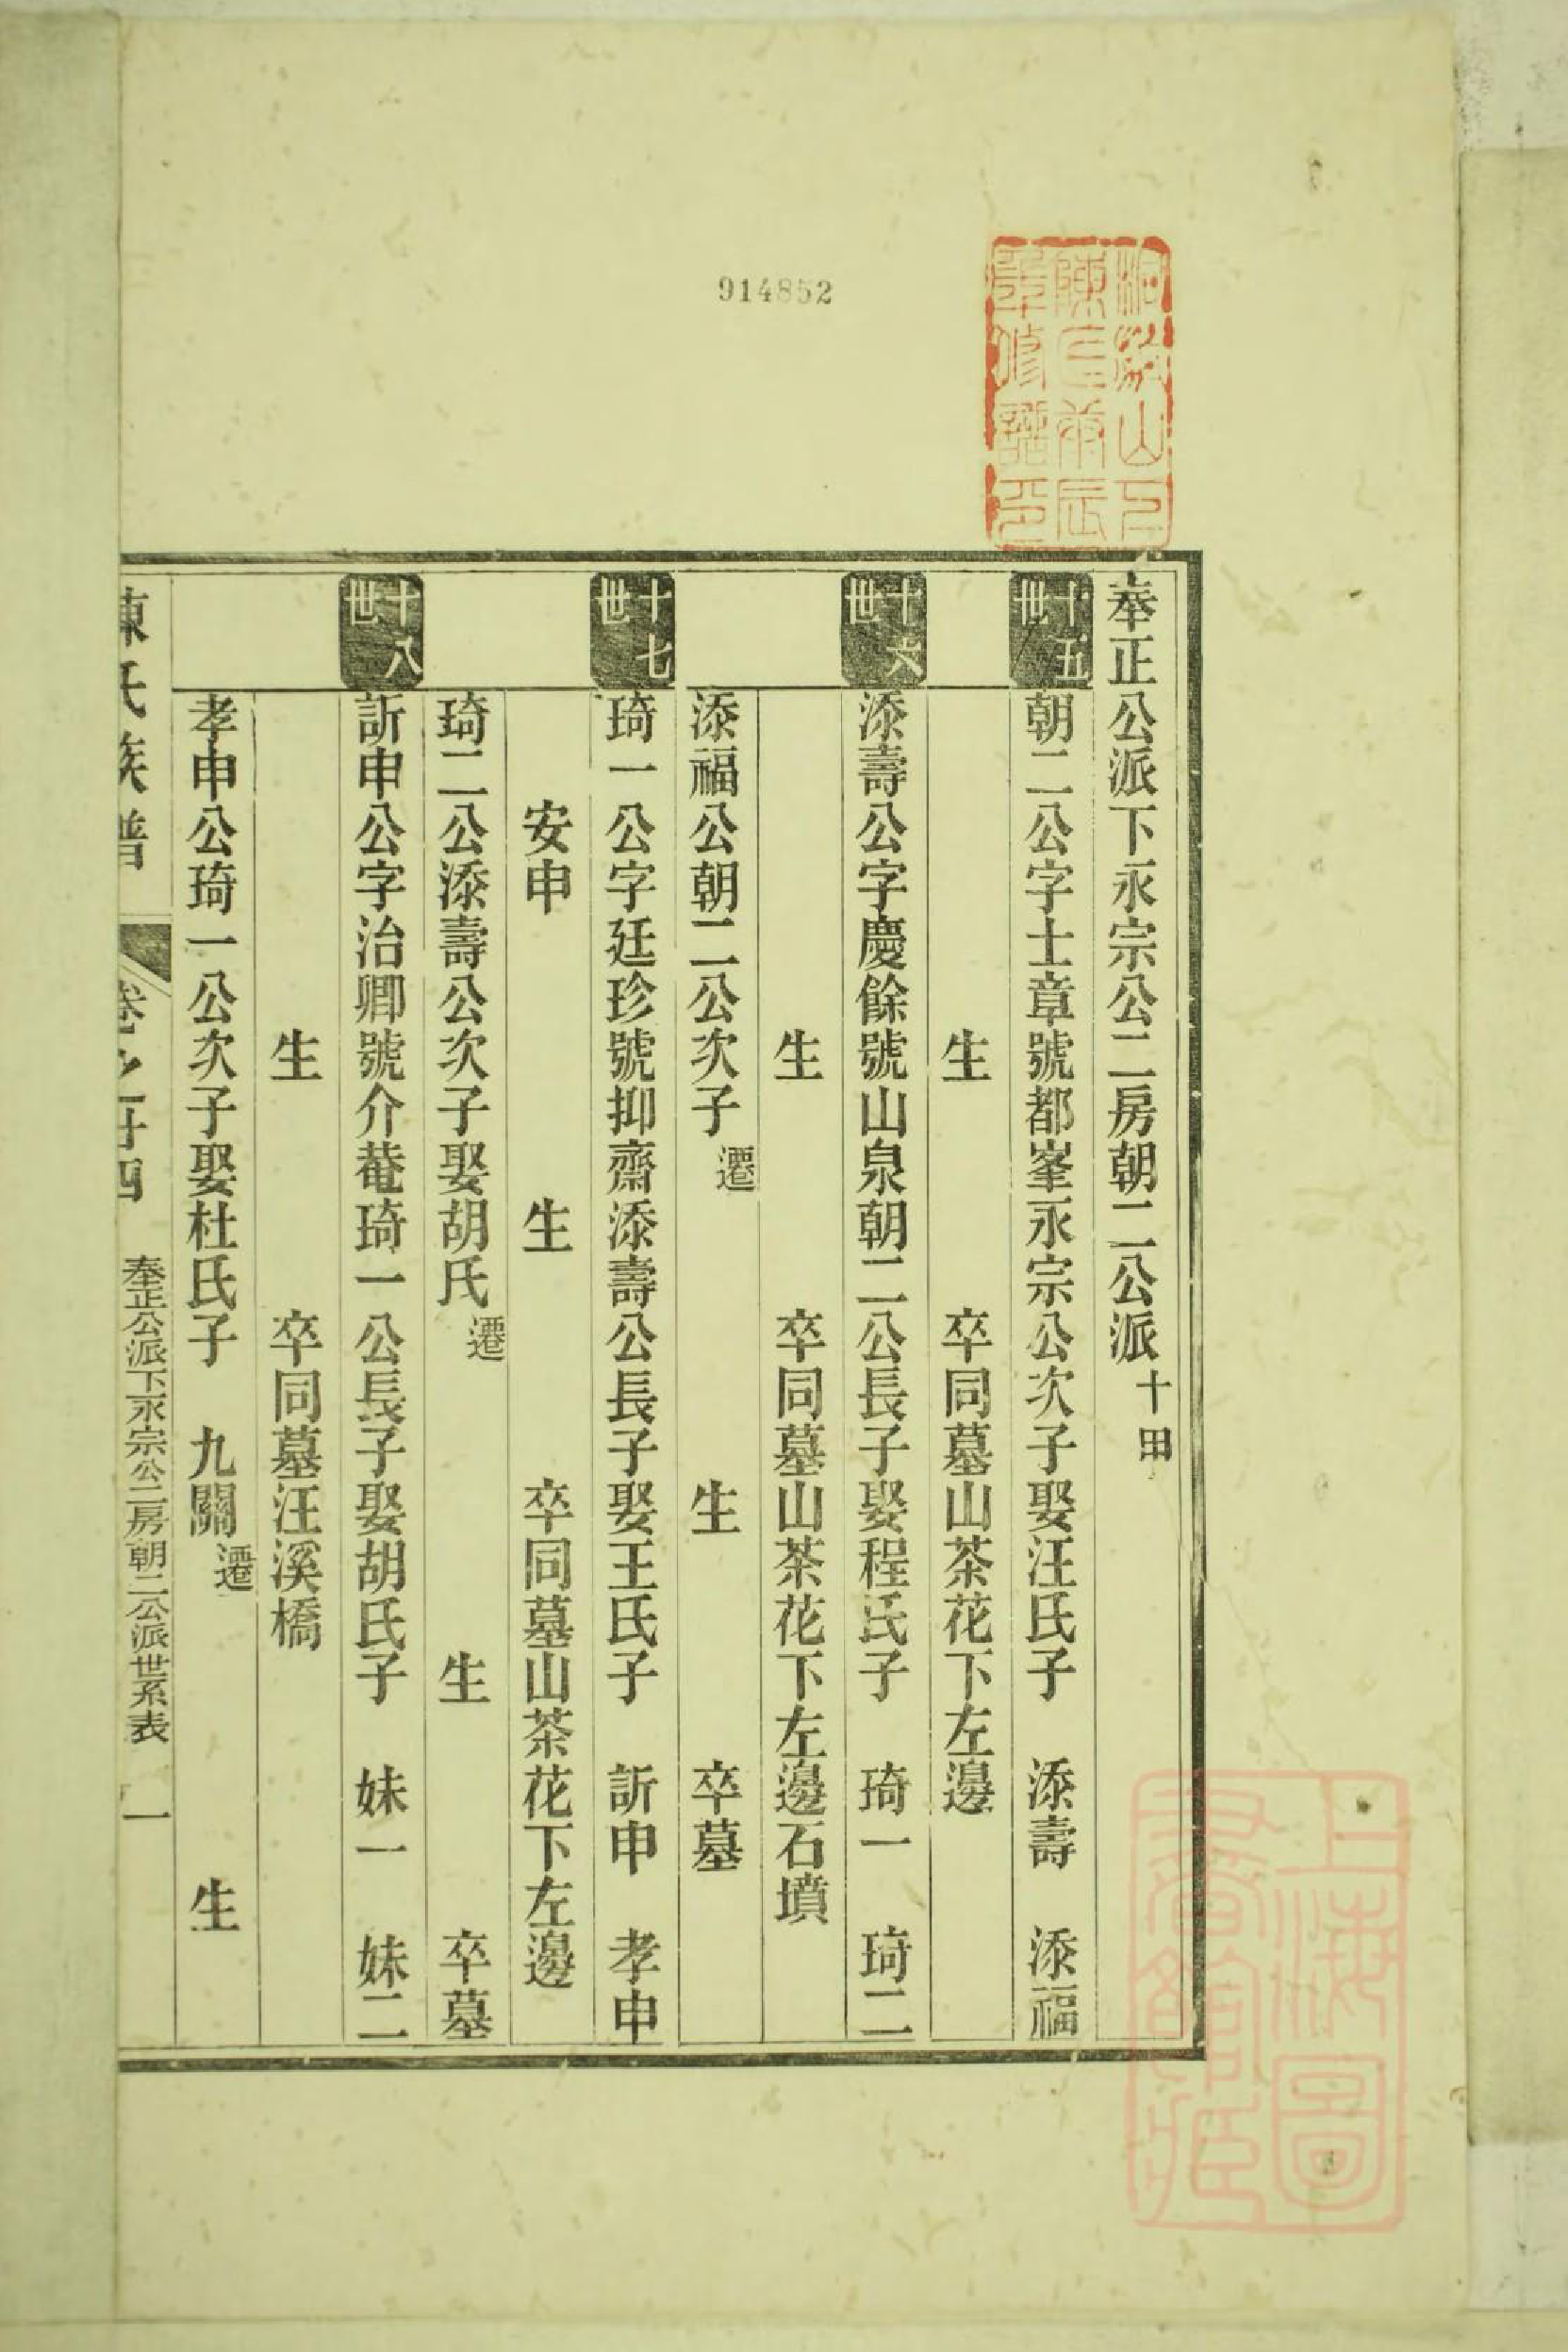 914852
奉正公派下永宗公二房朝二公派十田
十五世
朝二公字士章號都峯永宗公次子娶汪氏子　添壽　添福
生　卒同墓山茶花下左邊
十六世
添壽公字慶餘號山泉朝二公長子娶程氏子　琦一　琦二
生　卒同墓山茶花下左邊石墳
添福公朝二公次子遷　生　卒墓
十七世
琦一公字廷珍號抑齋添壽公長子娶王氏子　訢申　孝申
安申　生　卒同墓山茶花下左邊
琦二公添壽公次子娶胡氏遷　生　卒墓
十八世
訢申公字治卿號介菴琦一公長子娶胡氏子　妹一　妹二
生　卒同墓汪溪橋
孝申公琦一公次子娶杜氏子　九關遷　生
陳氏族譜　卷之廿四　奉正公派下永宗公二房朝二公派世系表　一
上海圖
書館藏